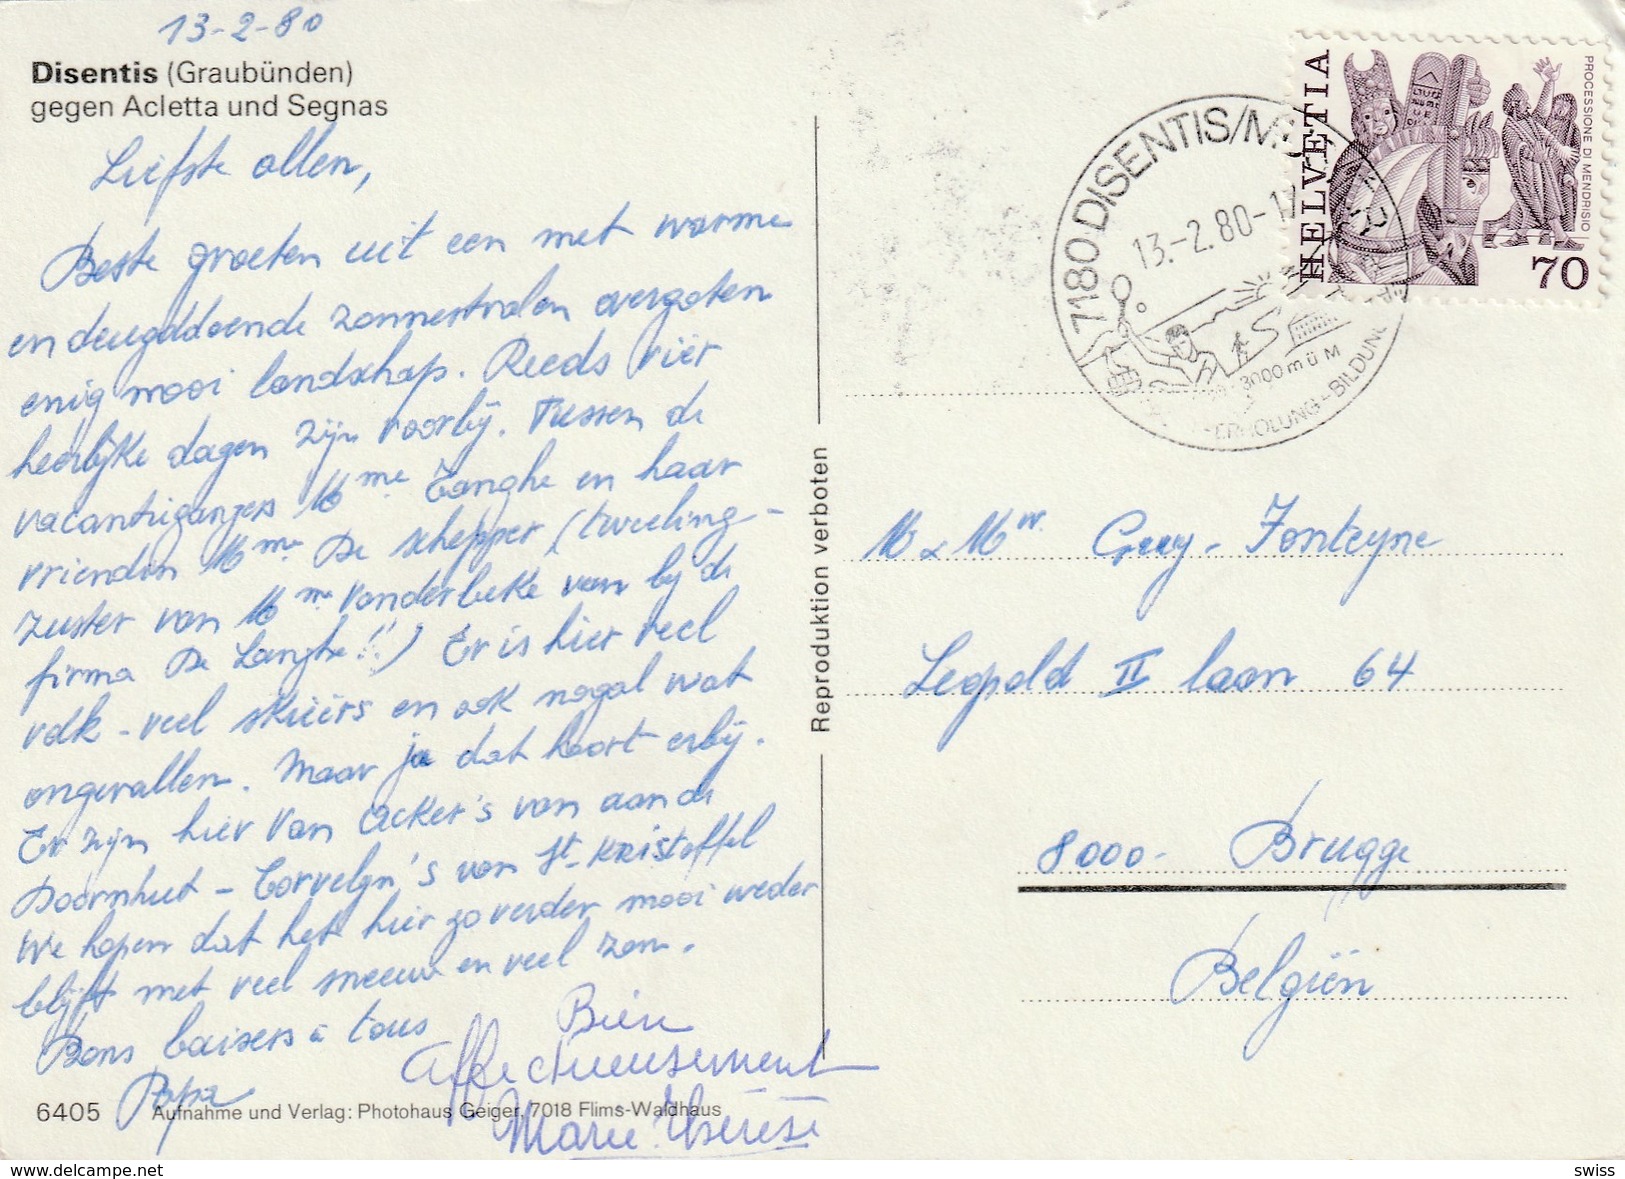 13-2-80
Disentis (Graubünden)
gegen Acletta und Segnas
Liefste allen,
Beste groeten uit een met warme
en deugddoende zonnestralen overgoten
enig mooi landschap. Reeds vier
heerlijke dagen zijn voorbij. Tussen de
vacantiegangers Mme Tanghe en haar
vrienden Mme De Schepper (tweeling-
zuster van Mme Vanderbeke van bij de
firma De Langhe!!) Er is hier veel
volk - veel skiërs en ook nogal wat
ongevallen. Maar ja dat hoort erbij.
Er zijn hier Van Acker's van aan de
Doornhut - Corvelyn's van St-Kristoffel
We hopen dat het hier zo verder mooi weder
blijft met veel sneeuw en veel zon.
Bons baisers à tous
Papa
Bien
affectueusement
Marie Thérèse
6405 Aufnahme und Verlag: Photohaus Geiger, 7018 Flims-Waldhaus
Reproduktion verboten
7180 DISENTIS/M
13.-2.80-1
3000 m ü M
ERHOLUNG-BILDUNG
HELVETIA
PROCESSIONE DI MENDRISIO
70
M & Mw. Gruy-Fonteyne
Leopold II laan 64
8000- Brugge
Belgiën
swiss